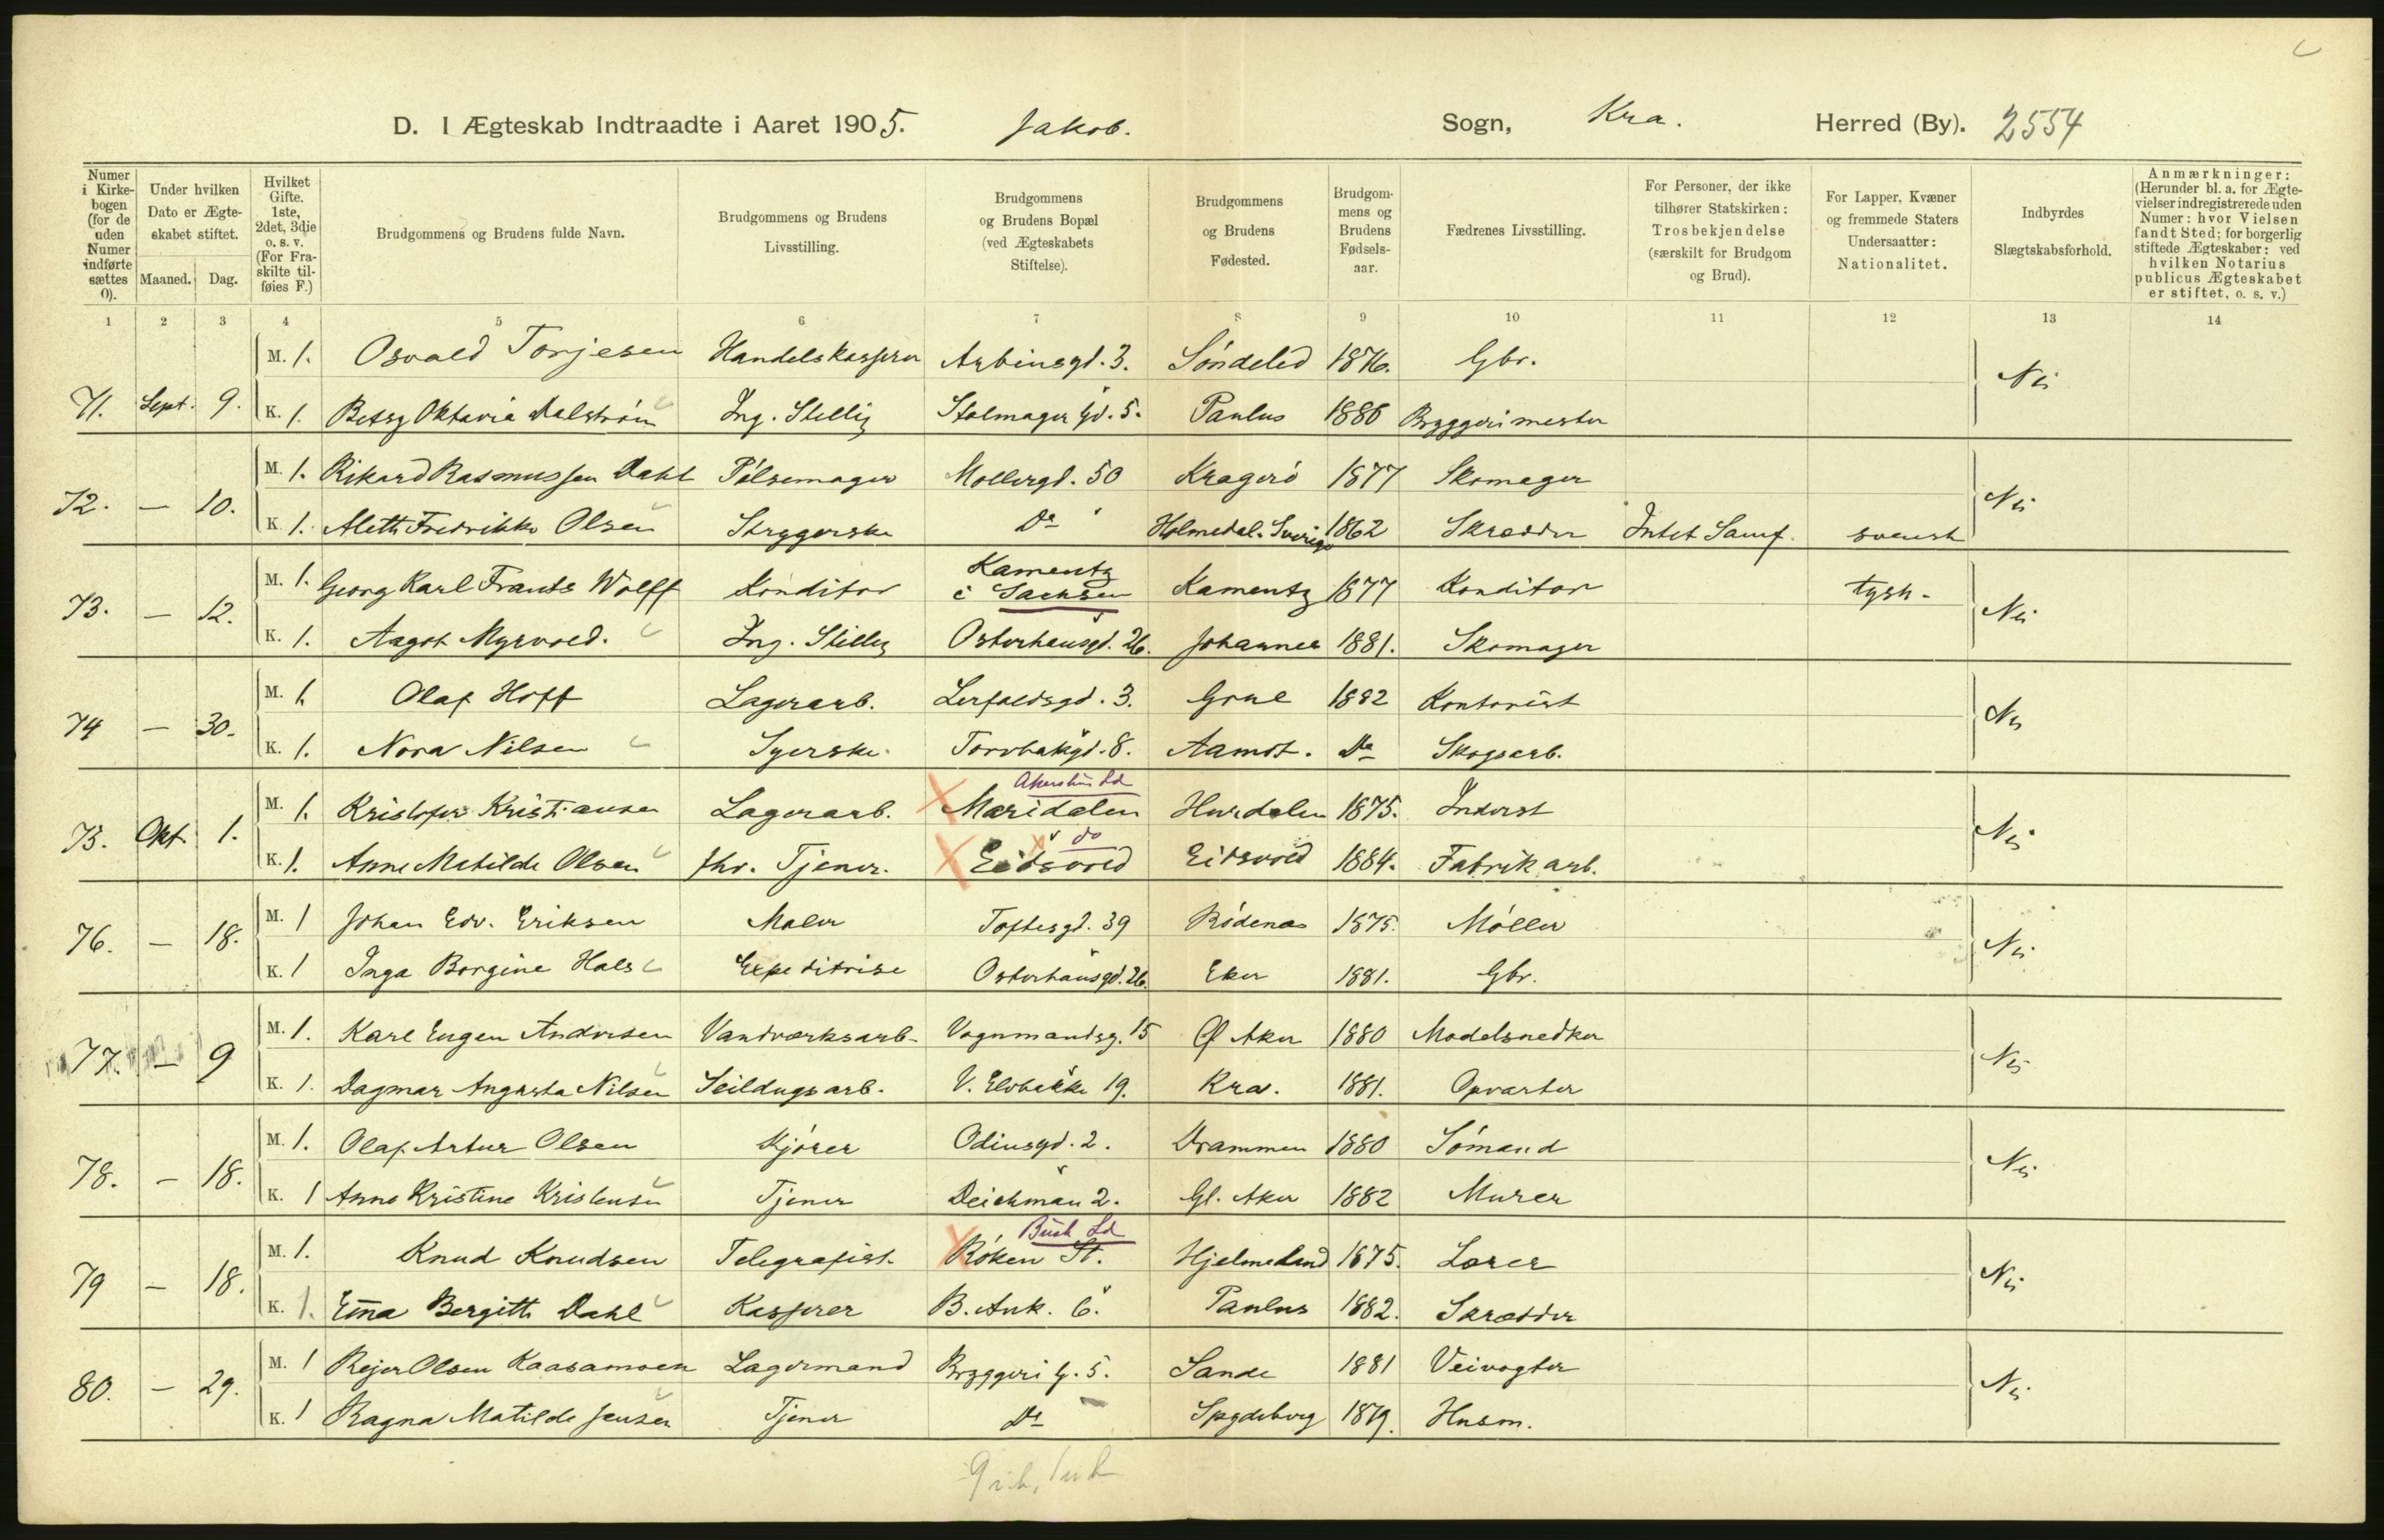 D. I Ægteskab Indtraadte i Aaret 1905. Jakob. Sogn, Kra. Herred (By). 2554
Numer i Kirkebogen (for de uden Numer indførte sættes 0).
Under hvilken Dato er Ægteskabet stiftet.
Maaned. Dag.
Hvilket Gifte. 1ste, 2det, 3die o. s. v. (For Fraskilte tilføies F.)
Brudgommens og Brudens fulde Navn.
Brudgommens og Brudens Livsstilling.
Brudgommens og Brudens Bopæl (ved Ægteskabets Stiftelse).
Brudgommens og Brudens Fødested.
Brudgommens og Brudens Fødselsaar.
Fædrenes Livsstilling.
For Personer, der ikke tilhører Statskirken: Trosbekjendelse (særskilt for Brudgom og Brud).
For Lapper, Kvæner og fremmede Staters Undersaatter: Nationalitet.
Indbyrdes Slægtskabsforhold.
Anmærkninger: (Herunder bl. a. for Ægtevielser indregistrerede uden Numer: hvor Vielsen fandt Sted; for borgerlig stiftede Ægteskaber: ved hvilken Notarius publicus Ægteskabet er stiftet, o. s. v.)
1 2 3 4 5 6 7 8 9 10 11 12 13 14
M. 1. Osvald Torjesen Handelskasserer Arbinsgd. 3. Søndeled 1876. Gbr.
71. Sept. 9. K. 1. Betsy Oktavia Dalstrøm Ing. Stellig Stolmager Gd. 5. Paulus 1886 Bryggerimester Nei
M. 1. Rikard Rasmussen Dahl Pølsemager Møllergd. 50 Kragerø 1877 Skomager
72. — 10. K. 1. Aleth Fredrikke Olsen Strygerske Do Holmedal. Sverige 1862 Skrædder Intet Samf. svensk Nei
M. 1. Georg Karl Frants Wolff Konditor Kamentz i Sachsen Kamentz 1877 Konditor tysk.
73. — 12. K. 1. Aagot Myrvold. Ing. Stilling Osterhausgd. 26. Johannes 1881. Skomager Nei
M. 1. Olaf Hoff Lagerarb. Lerfaldsgd. 3. Grue 1882 Kontorist
74 — 30. K. 1. Nora Nilsen Syerske. Torvbakgd. 8. Aamot. Do Skogsarb. Nei
Akershus Ld
M. 1. Kristofer Kristiansen Lagerarb. Maridalen Hurdalen 1875. Inderst
do
75. Okt. 1. K. 1. Anne Matilde Olsen fhv. Tjener. Eidsvold Eidsvold 1884. Fabrikarb. Nei
M. 1 Johan Edv. Eriksen Maler Toftesgd. 39 Rødenes 1875. Møller
76. — 18. K. 1 Inga Borgine Hals Expeditrise Osterhausgd. 26. Eker 1881. Gbr. Nei
M. 1. Karl Eugen Andersen Vandværksarb. Vognmandsg. 15 Ø Aker 1880 Modelsnedker
77. — 9 K. 1. Dagmar Augusta Nilsen Seildugsarb. V. Elvbakke 19. Kra. 1881. Opvarter Nei
M. 1. Olaf Artur Olsen Kjører Odinsgd. 2. Drammen 1880 Sømand
78. — 18. K. 1 Anna Kristine Kristensen Tjener Deichman 2. Gl. Aker 1882 Murer Nei
Busk Ld
M. 1. Knud Knudsen Telegrafist. Røken St. Hjelmeland 1875. Lærer
79 — 18. K. 1. Ema Bergitte Dahl Kasserer B. Ank. 6. Paulus 1882. Skrædder Nei
M. 1 Rejer Olsen Kaasamoen Lagermand Bryggeri G. 5. Sande 1881 Veivogter
80. — 29. K. 1 Ragna Matilde Jensen Tjener Do Spydeberg 1879. Husm. Nei